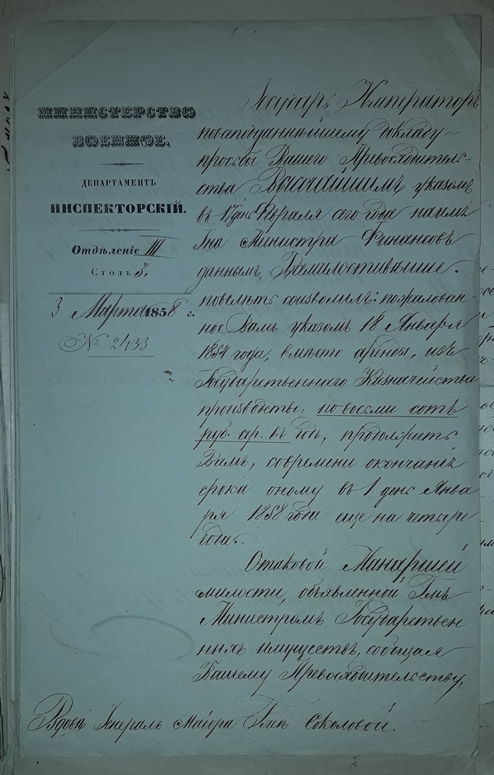 МИНИСТЕРСТВО
ВОЕННОЕ.
ДЕПАРТАМЕНТЪ
ИНСПЕКТОРСКІЙ.
Отдѣленіе III
Столъ 3.
3 Марта 1858 г.
№ 2433
Государь Императоръ
повсеподданнѣйшему докладу
просьбы Вашего Превосходитель-
ства Высочайшимъ указомъ,
въ 17 день Февраля сего года на имя
Гна Министра Финансовъ
даннымъ, Всемилостивѣйше
повелѣть соизволилъ: пожалован-
ное Вамъ указомъ 18 Января
1854 года, вмѣсто аренды, изъ
Государственнаго Казначейства
производство, по восьми сотъ
руб. сер. въ годъ, продолжать
Вамъ, со времени окончанія
срока оному въ 1 день Янва
ря 1858 года еще на четыре
года.
О таковой Монаршей
милости, объявленной Гмъ
Министромъ Государствен
ныхъ имуществъ, сообщая
Вашему Превосходительству,
Вдовѣ Генералъ Маіора Гжѣ Соколовой.